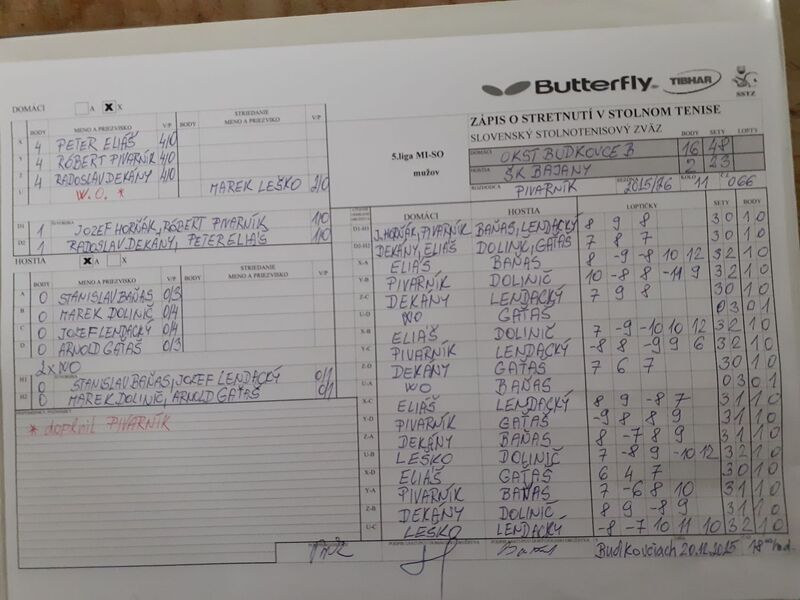 Butterfly TIBHAR SSTZ
ZÁPIS O STRETNUTÍ V STOLNOM TENISE
SLOVENSKÝ STOLNOTENISOVÝ ZVÄZ
BODY SETY LOPTY
5.liga MI-SO
mužov
DOMÁCI OKST BUDKOVCE B 16 48
HOSTIA ŠK BAJANY 2 23
ROZHODCA PIVARNÍK 2015/16 KOLO 11 Č. 066
DOMÁCI A X X
BODY MENO A PRIEZVISKO V/P BODY STRIEDANIE MENO A PRIEZVISKO V/P
X 4 PETER ELIÁŠ 4/0
Y 4 RÓBERT PIVARNÍK 4/0
Z 4 RADOSLAV DEKÁNY 4/0
U W.O. * MAREK LEŠKO 2/0
D1 1 JOZEF HORŇÁK, RÓBERT PIVARNÍK 1/0
D2 1 RADOSLAV DEKÁNY, PETER ELIÁŠ 1/0
HOSTIA X A X
BODY MENO A PRIEZVISKO V/P BODY STRIEDANIE MENO A PRIEZVISKO V/P
A 0 STANISLAV BAŇAS 0/3
B 0 MAREK DOLINIČ 0/4
C 0 JOZEF LENDACKÝ 0/4
D 0 ARNOLD GAŤAŠ 0/3
2x WO
H1 0 STANISLAV BAŇAS, JOZEF LENDACKÝ 0/1
H2 0 MAREK DOLINIČ, ARNOLD GAŤAŠ 0/1
* doplnil PIVARNÍK
DOMÁCI HOSTIA LOPTIČKY SETY BODY
D1-H1 J.HORŇÁK, PIVARNÍK BAŇAS, LENDACKÝ 8 9 8 3 0 1 0
D2-H2 DEKÁNY, ELIÁŠ DOLINIČ, GAŤAŠ 7 8 7 3 0 1 0
X-A ELIÁŠ BAŇAS 8 -9 -8 10 12 3 2 1 0
Y-B PIVARNÍK DOLINIČ 10 -8 8 -11 9 3 2 1 0
Z-C DEKÁNY LENDACKÝ 7 9 8 3 0 1 0
U-D WO GAŤAŠ 0 3 0 1
X-B ELIÁŠ DOLINIČ 7 -9 -10 10 12 3 2 1 0
Y-C PIVARNÍK LENDACKÝ -8 8 -9 9 6 3 2 1 0
Z-D DEKÁNY GAŤAŠ 7 6 7 3 0 1 0
U-A WO BAŇAS 0 3 0 1
X-C ELIÁŠ LENDACKÝ 8 9 -8 7 3 1 1 0
Y-D PIVARNÍK GAŤAŠ -9 8 8 9 3 1 1 0
Z-A DEKÁNY BAŇAS 8 -7 8 9 3 1 1 0
U-B LEŠKO DOLINIČ 7 -8 9 -10 12 3 2 1 0
X-D ELIÁŠ GAŤAŠ 6 4 7 3 0 1 0
Y-A PIVARNÍK BAŇAŠ 7 -6 8 10 3 1 1 0
Z-B DEKÁNY DOLINIČ 8 9 -8 9 3 1 1 0
U-C LEŠKO LENDACKÝ -8 -7 10 11 10 3 2 1 0
Budkovciach 20.12.2015